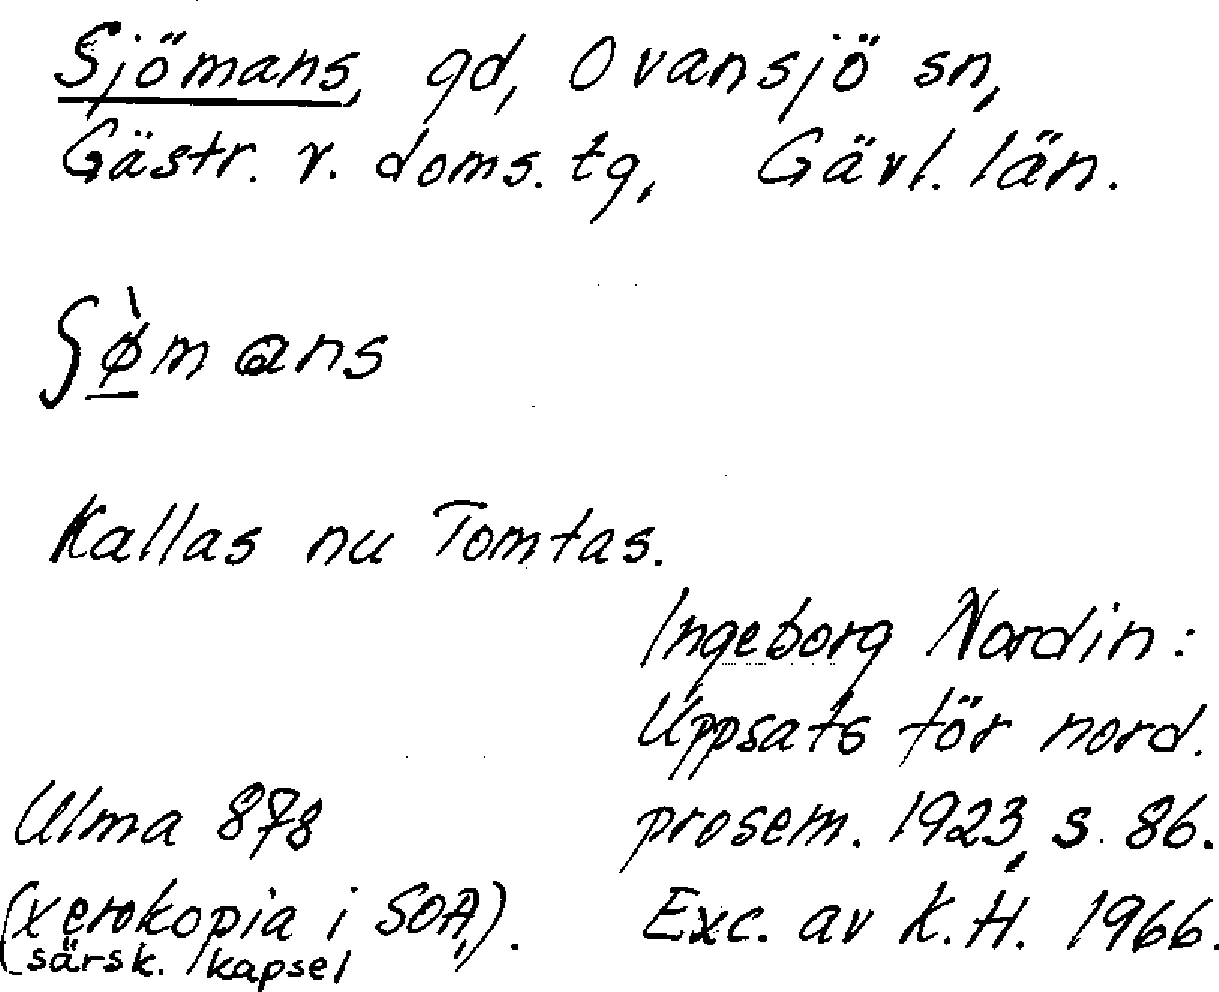 Sjömans, gd, Ovansjö sn,
Gästr. v. doms. tg, Gävl. län.
ʃø̱̀mans
Kallas nu Tomtas.
Ingeborg Nordin:
Uppsats för nord.
prosem. 1923, s. 86.
Exc. av K.H. 1966.
Ulma 878
(xerokopia i SOA,).
särsk. kapsel